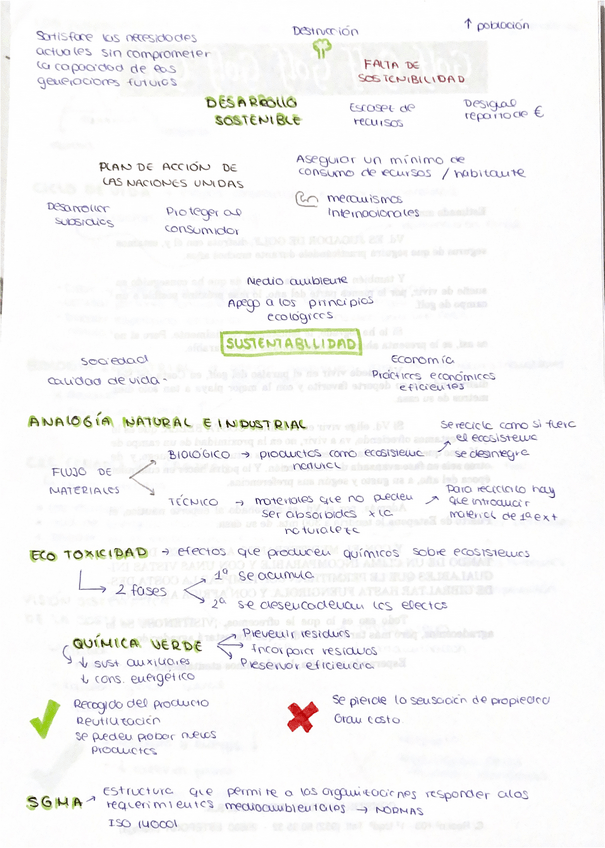 Satisface las necesidades
actuales sin comprometer
la capacidad de las
generaciones futuras
Destrucción
↑ población
FALTA DE
SOSTENIBILIDAD
DESARROLLO
SOSTENIBLE
Escasez de
recursos
Desigual
reparto de €
PLAN DE ACCIÓN DE
LAS NACIONES UNIDAS
Asegurar un mínimo de
consumo de recursos / habitante
mecanismos
Internacionales
Desarrollar
subsidios
Proteger al
consumidor
Medio ambiente
Apego a los principios
ecológicos
SUSTENTABILIDAD
Sociedad
calidad de vida
Economía
Prácticas económicas
eficientes
ANALOGÍA NATURAL E INDUSTRIAL
FLUJO DE
MATERIALES
BIOLÓGICO → productos como ecosistema
natural
se recicla como si fuera
el ecosistema
se desintegra
TÉCNICO → materiales que no pueden
ser absorbidos x la
naturaleza
Para reciclarlo hay
que introducir
material de 1ª ext
ECO TOXICIDAD → efectos que producen químicos sobre ecosistemas
2 fases
1ª se acumula
2ª se desencadenan los efectos
QUÍMICA VERDE
Prevenir residuos
Incorporar residuos
Preservar eficiencia
↓ sust auxiliares
↓ cons. energético
Recogida del producto
Reutilización
se pueden probar nuevos
productos
Se pierde la sensación de propiedad
Gran costo
SGMA → estructura que permite a las organizaciones responder a los
requerimientos medioambientales → NORMAS
ISO 14001